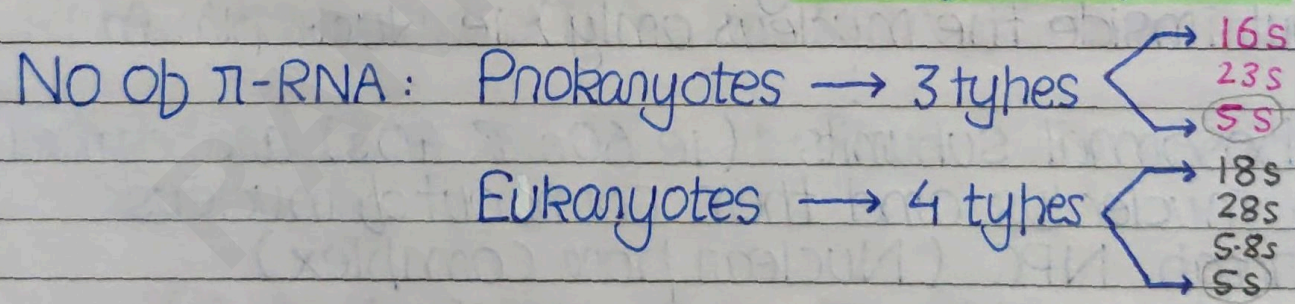 No of r-RNA: Prokaryotes → 3 types
16s
23s
5s
Eukaryotes → 4 types
18s
28s
5.8s
5s